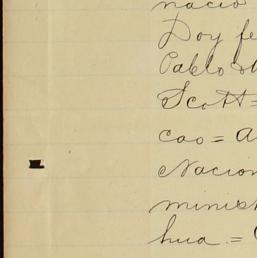 nacio
Doy fe
Pablo
Scott=
cao = a
Nacion
minist
hua. =